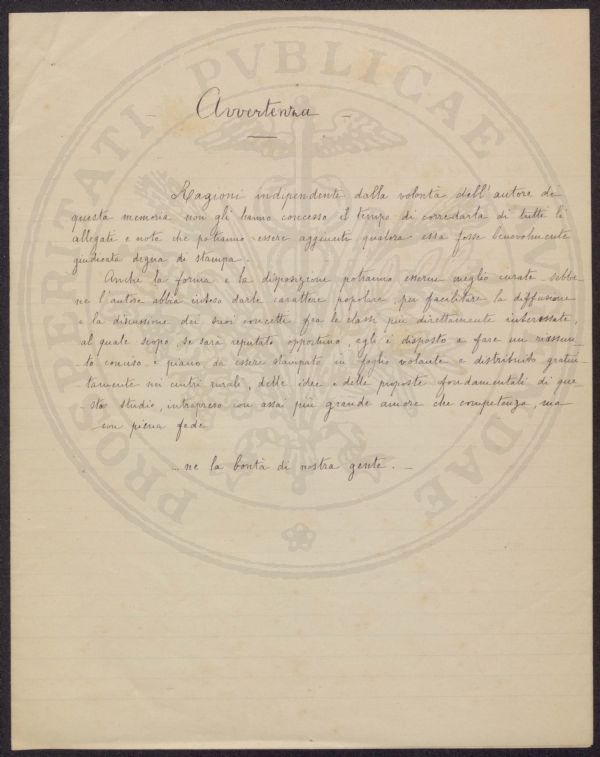 Avvertenza
Ragioni indipendenti dalla volontà dell'autore di
questa memoria non gli hanno concesso il tempo di corredarla di tutti li
allegati e note che potranno essere aggiunti qualora essa fosse benevolmente
giudicata degna di stampa.
Anche la forma e la disposizione potranno esserne meglio curate sebbe-
ne l'autore abbia inteso darle carattere popolare, per facilitare la diffusione
e la discussione dei suoi concetti fra le classi più direttamente interessate,
al quale scopo, se sarà reputato opportuno, egli è disposto a fare un riassun-
to conciso e piano da essere stampato in foglio volante e distribuito gratui-
tamente nei centri rurali, delle idee e delle proposte fondamentali di que-
sto studio, intrapreso con assai più grande amore che competenza, ma
con piena fede
... ne la bontà di nostra gente. -
PROSPERITATI PVBLICAE
DAE